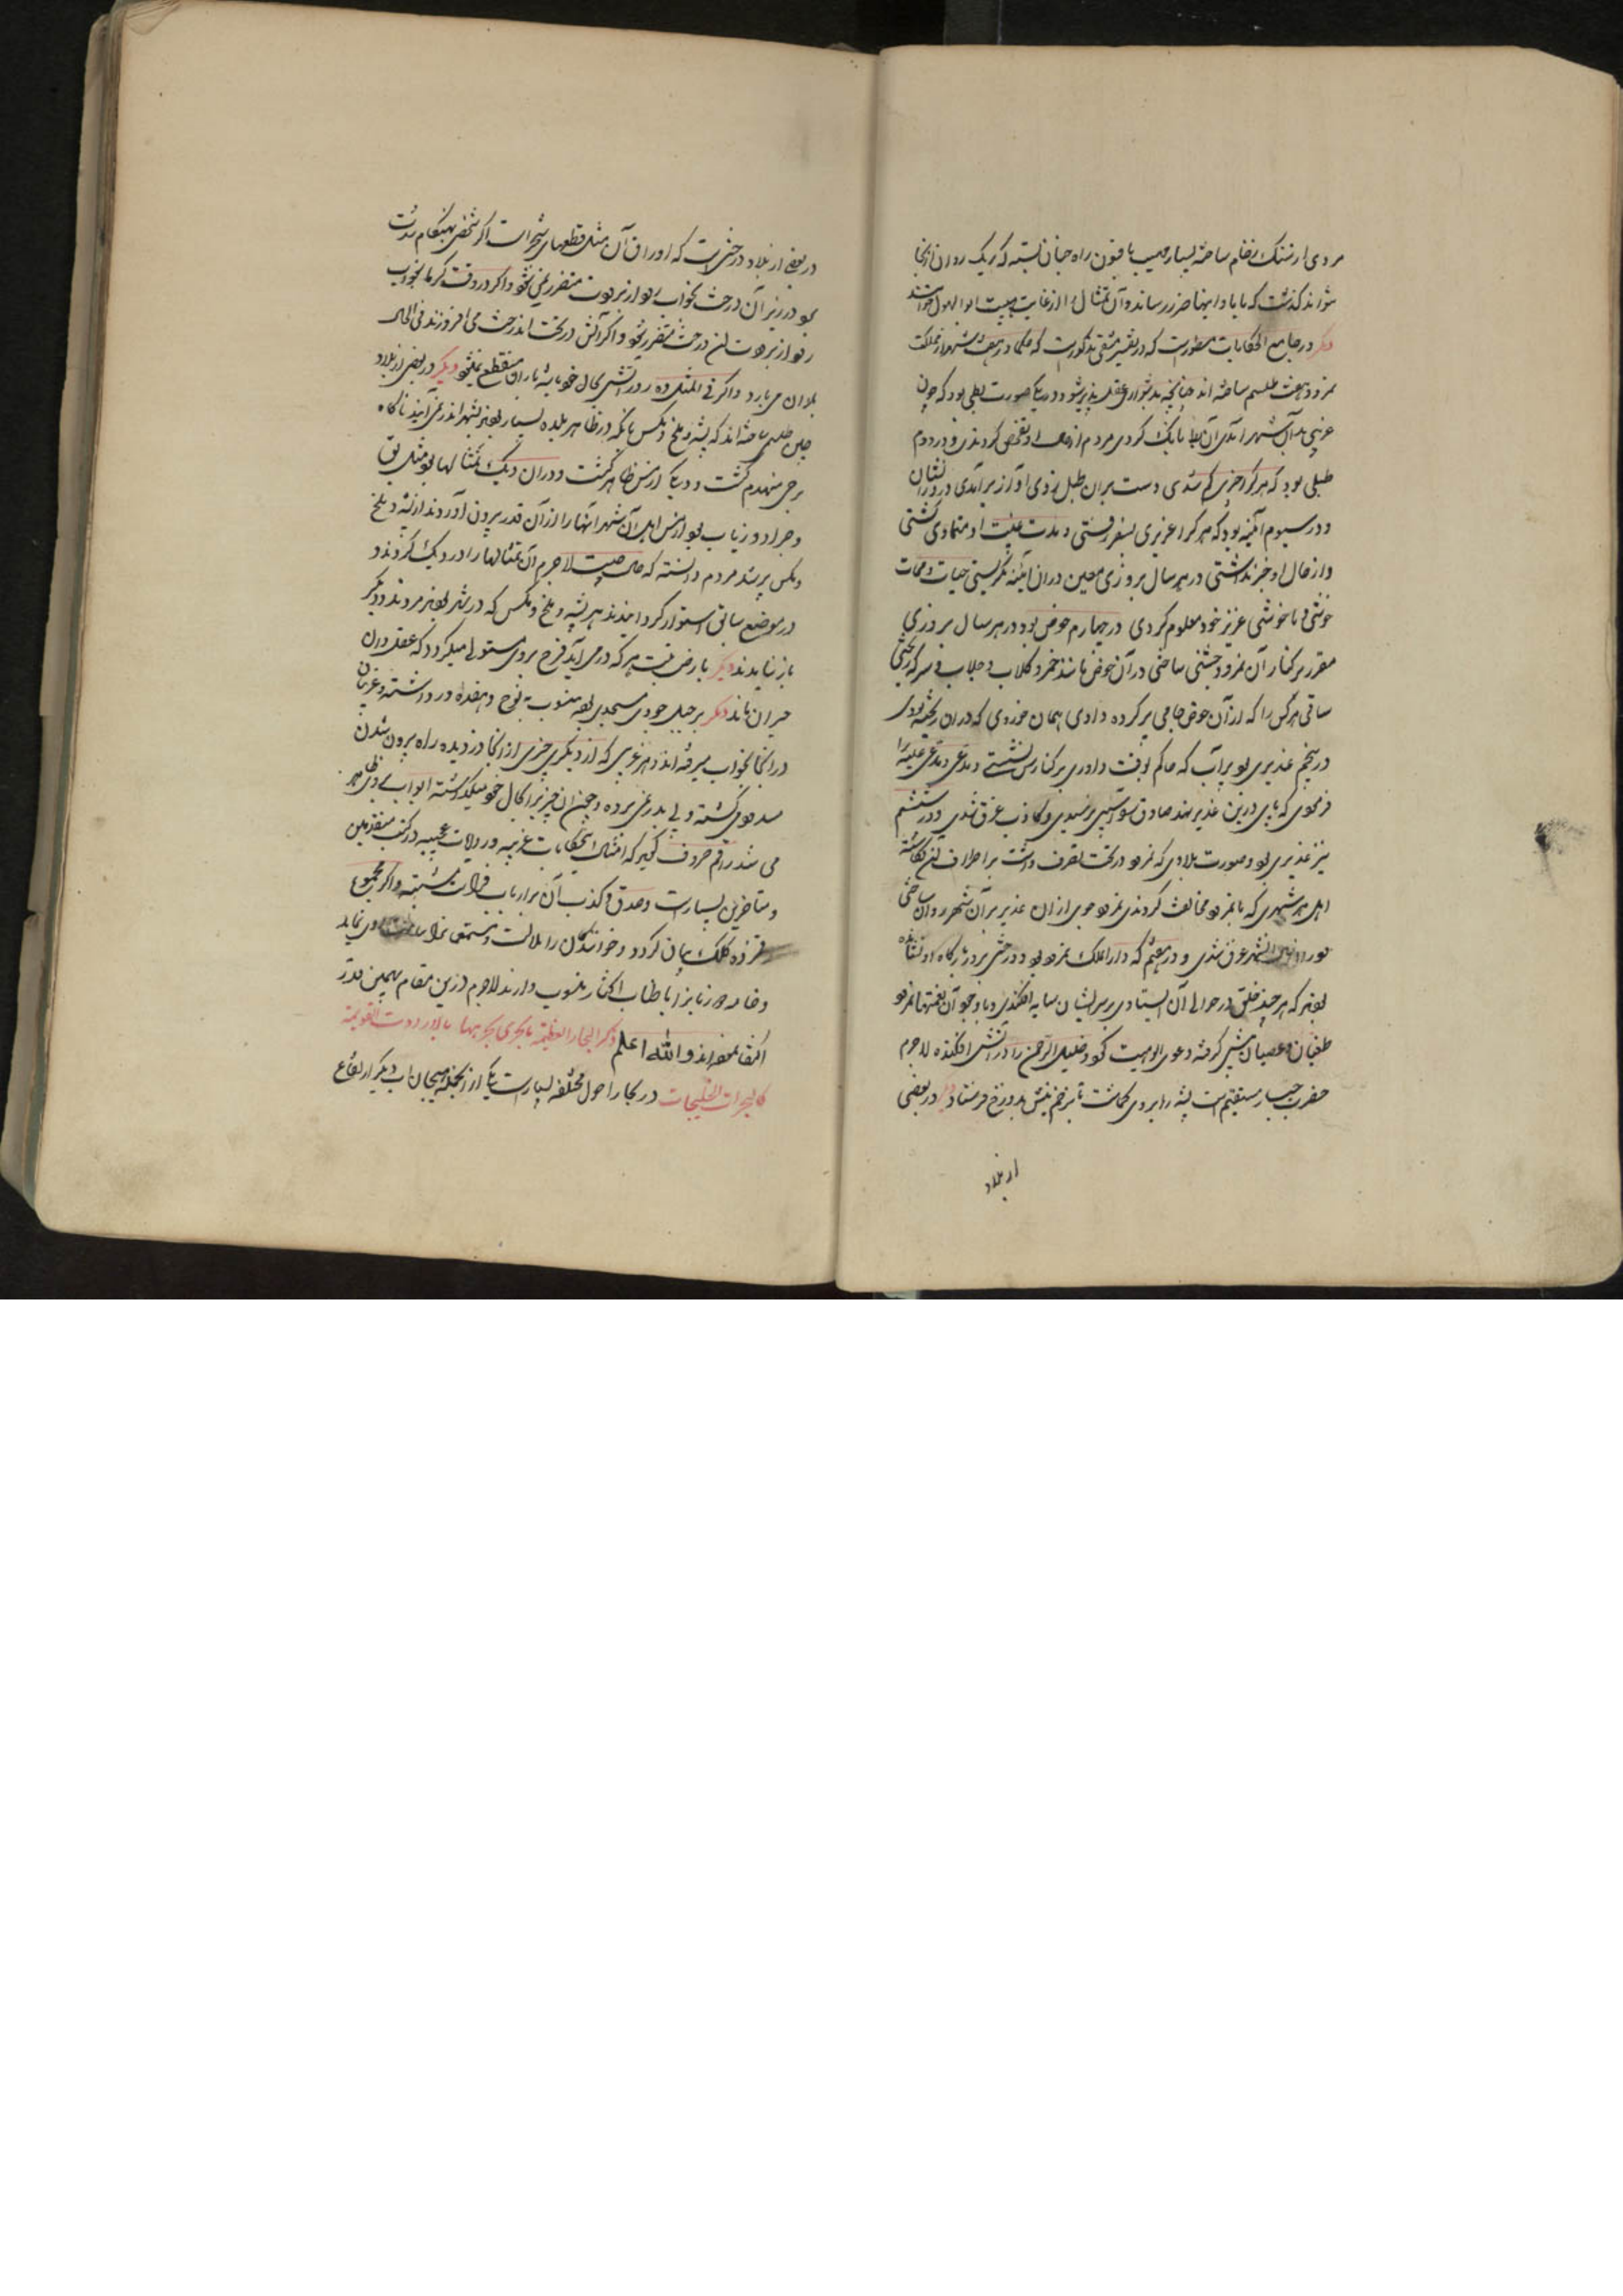 مردی از سنک رخام ساخته بسیار مهیب بافسون راه چنان بسته که ریک روان ازانجا
نتواند کذشت که بابادانیها ضرر رساند و آن تمثال را از غایت هیبت ابوالهول خوانند
دیکر در جامع الحکایات مسطورست که در تفسیر مذکورست که حکما در هفت شهر از مملکت
نمرود هفت طلسم ساخته اند چنانچه بدشواری عقل پذیر شود در یکی صورت بطی بود که چون
غریبی بدان شهر آمدی آن بط بانک کردی مردم از حال او تفحص کردندی و در دوم
طبلی بود که هرکرا چیزی کم شدی دست بران طبل زدی آواز برآمدی
و در سیوم آئینه بود که هرکرا عزیزی بسفر رفتی و مدت غیبت او متمادی کشتی
و از حال او خبر نداشتی در هر سال بروزی معین دران آئینه نکریستی حیات و ممات
خوشی و ناخوشی عزیز خود معلوم کردی در چهارم حوض بود در هر سال بروزی
مقرر بر کنار آن نمرود جشنی ساختی در آن حوض مانند خمر و کلاب و جلاب و سرکه ریختی
ساقی هرکس را که از آن حوض جامی پر کرده دادی همان خوردی که دران ریخته بودی
در پنجم غدیری بود پرآب که حاکم بوقت داوری بر کنارش نشستی و مدعی و مدعی علیه را
فرمودی که پای درین غدیر نهند صادق را آسیبی نرسیدی و کاذب غرق شدی و در ششم
نیز غدیری بود و صورت بلادی که نمرود در تحت تصرف داشت بر اطراف آن نکاشته
اهل هر شهری که با نمرود مخالفت کردندی نمرود جوی از آن غدیر بر آن شهر روان ساختی
شهر غرق شدی و در هفتم که دارالملک نمرود بود درختی بر درکاه او نشانده
بودند که هر چند خلق در حوالی آن ایستادی بر سر ایشان سایه افکندی و با وجود آن نعمتها نمرود
طغیان و عصیان پیش کرفته دعوی الوهیت کرد و خلیل الرحمن را در آتش افکنده لاجرم
حضرت جبار منتقم پشه را بر وی کماشت تا بزخم نیش بدوزخ فرستاد دیکر در بعضی
از بلاد
در بعضی از بلاد درختیست که اوراق آن مثل قطعهای است اکر شخصی بهنکام
در زیر آن درخت بخواب رود از برودت متضرر نمی شود و اکر در وقت کرما بخواب
رود از برودت آن درخت متضرر شود و اکر آتش در تحت آن درخت می افروزند فی الحال
باران می بارد و اکر فی المثل ده روز آتش بحال خود باشد باران منقطع نمیشود دیکر در بعضی از بلاد
چین طلسمی ساخته اند که پشه و ملخ و مکس بانکه در ظاهر بلده بسیار بودند بشهر اندر نمی آیند ناکاه
برجی منهدم کشت و دیکی از مس ظاهر کشت و دران دیک تمثالها بود مثل بق
و جراد و ذباب بود از مس اهل آن شهر آنها را از آن قدر بیرون آوردند از پشه و ملخ
و مکس پر شد مردم دانسته که حال چیست لاجرم آن تمثالها را در دیک کردند و
در موضع سابق استوار کردانیدند هر پشه و ملخ و مکس که در شهر بودند مردند و دیکر
باز نیامدند دیکر بارض تبت هرکه در می آید فرح بر وی مستولی میکردد که عقل دران
حیران ماند دیکر بر جبل جودی مسجدی بود منسوب به نوح و هفده در داشته و غریبان
در آنجا بخواب میرفته اند و هر غریبی که از دیکری چیزی از آنجا دزدیده راه بیرون شدن
مسدود کشته و پی بدر نمی برده و چون آن چیز را بحال خود میکذاشته ابواب بر وی ظاهر
می شد راقم حروف کوید که امثال این حکایات غریبه و روایات عجیبه در کتب متقدمین
و متاخرین بسیارست و صدق و کذب آن بر ارباب فراست مشتبه و اکر مجموع
رقمزده کلک بیان کردد و خوانندکان را ملالت و مستمع را سامت روی نماید
و خامه دو زبانرا باطناب و اکثار منسوب دارند لاجرم درین مقام بهمین قدر
اکتفا نموده اند والله اعلم ذکر البحار العظیمة
کالبحرات و الخلیجات در بحار احوال مختلفه بسیارست یکی از انجمله هیجان آب دیکر ارتفاع